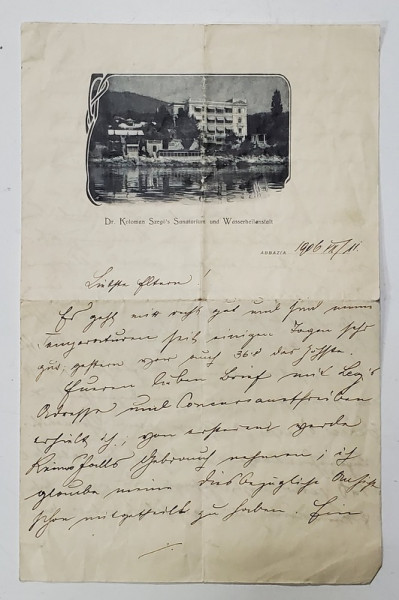 Dr. Koloman Szegö's Sanatorium und Wasserheilanstalt
ABBAZIA, 1906 IX/11.
Liebste Eltern!
Es geht mir recht gut und sind meine
Temperaturen seit einigen Tagen sehr
gut, gestern war auch 36·8 das höchste.
Eueren lieben Brief mit
Adresse und Concursausschreiben
erhielt ich; von ersterem werde
Keinesfalls Gebrauch nehmen; ich
glaube meine diesbezügliche Ansicht
schon mitgetheilt zu haben. Ein